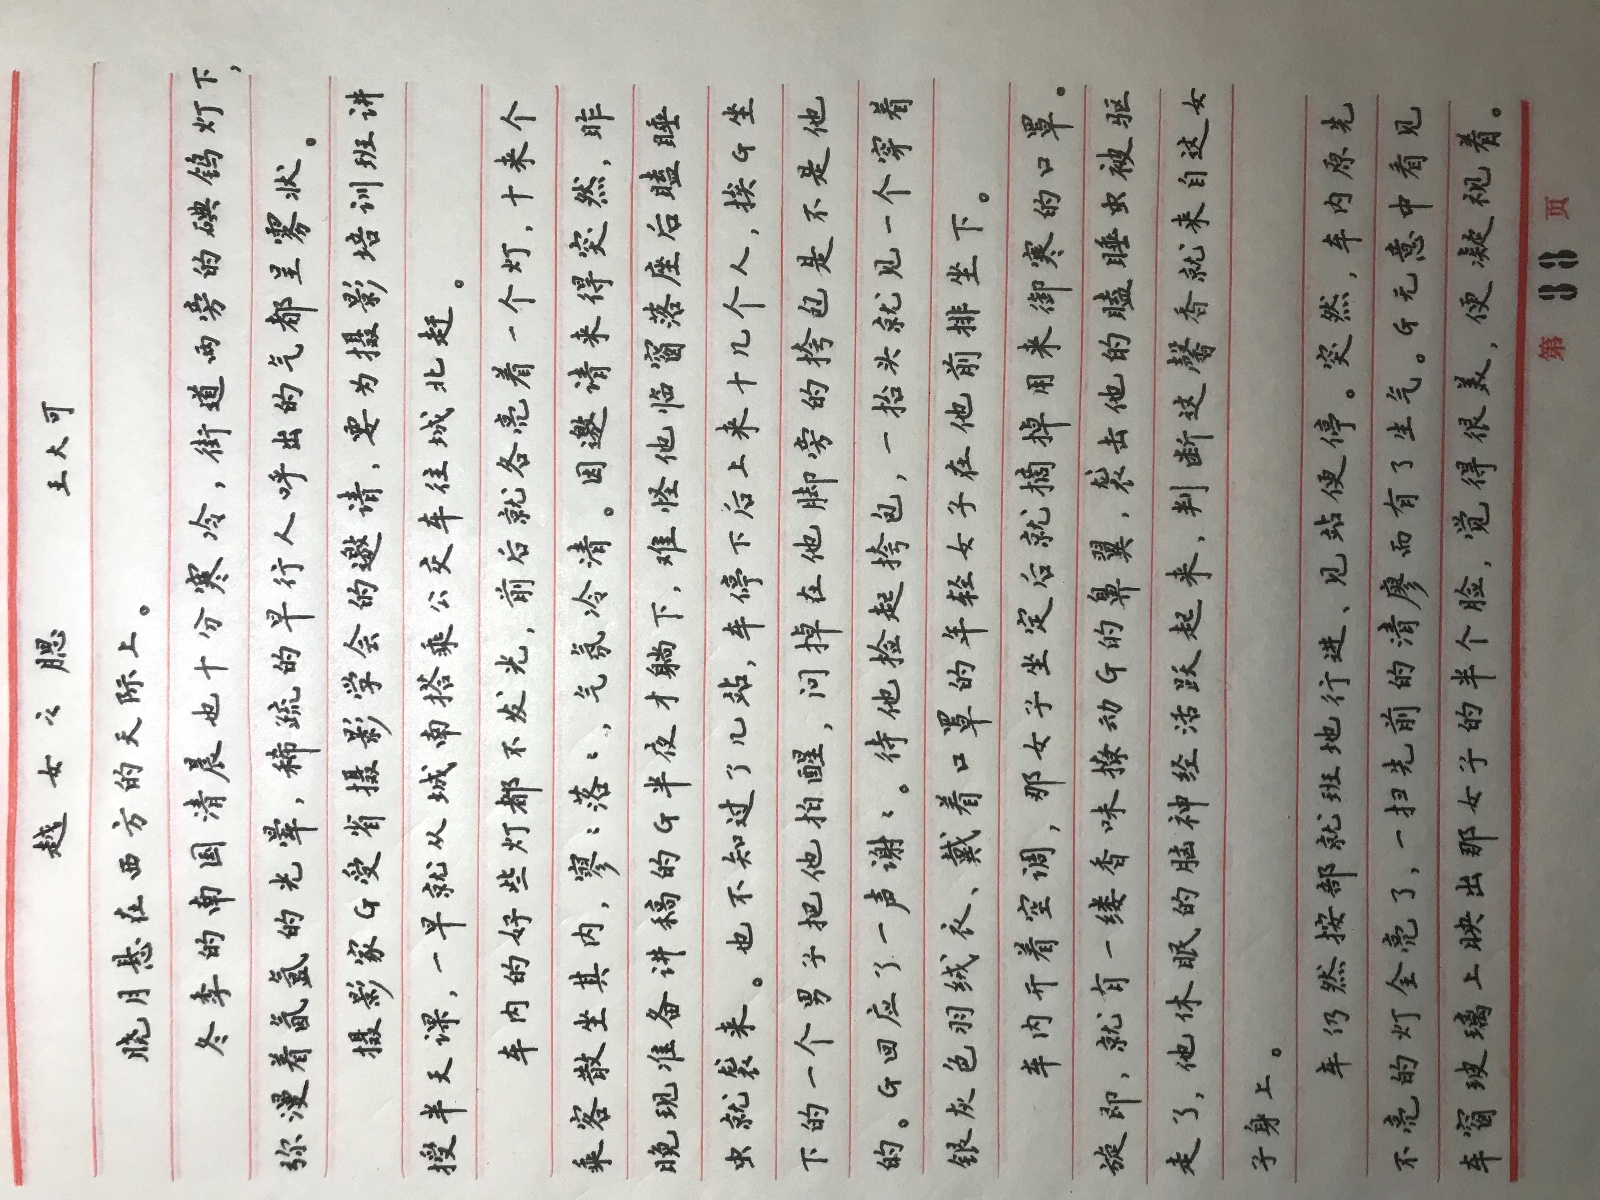 越女之腮 王大可
晓月悬在西方的天际上。
冬季的南国清晨也十分寒冷，街道两旁的碘钨灯下，
弥漫着氤氲的光晕，稀疏的早行人呼出的气都呈雾状。
摄影家G受省摄影学会的邀请，要为摄影培训班讲
授半天课，一早就从城南搭乘公交车往城北赶。
车内的好些灯都不发光，前后就各亮着一个灯，十来个
乘客散坐其内，寥：落：，气氛冷清。因邀请来得突然，昨
晚现准备讲稿的G半夜才躺下，难怪他临窗落座后瞌睡
虫就袭来。也不知过了几站，车停下后上来十几个人，挨G坐
下的一个男子把他拍醒，问掉在他脚旁的挎包是不是他
的。G回应了一声谢：。待他捡起挎包，一抬头就见一个穿着
银灰色羽绒衣、戴着口罩的年轻女子在他前排坐下。
车内开着空调，那女子坐定后就摘掉用来御寒的口罩。
旋即，就有一缕香味撩动G的鼻翼，袭击他的瞌睡虫被驱
走了，他休眠的脑神经活跃起来，判断这馨香就来自这女
子身上。
车仍然按部就班地行进、见站便停。突然，车内原先
不亮的灯全亮了，一扫先前的清廖而有了生气。G无意中看见
车窗玻璃上映出那女子的半个脸，觉得很美，便凝视着。
第 38 页